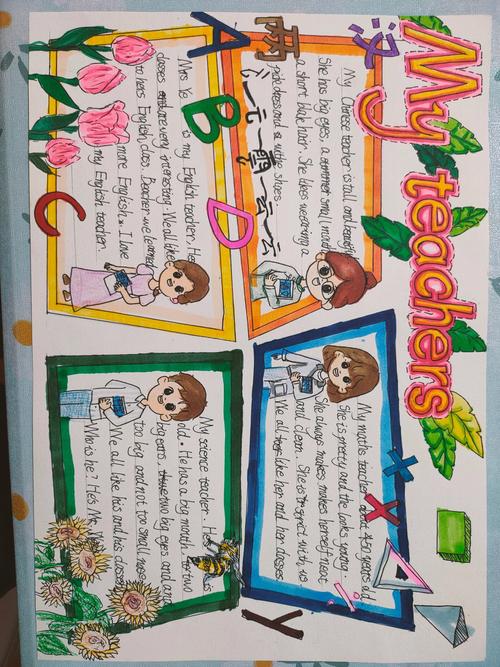 My teachers
汉
两
My Chinese teacher is tall and beautiful
She has big eyes, a small mouth
a short blak hair. She likes wearing a
pink dress and a white shoes.
My maths teacher about 450 years old
She is pretty and the looks young.
She always makes makes herself neat
and clean. She is strict with us
We all like her and her classes
A
B
C
D
Mrs Ye is my English teacher. Her
classes are very interesting. We all like
to hers English class. Because we learned
more English. I love
my English teacher.
My science teacher. He's
old. He has a big mouth. two
big ears, two big eyes and an
too big and not too small nose
We all like his and his classes
Who is he? He's Mr.
X
X
y